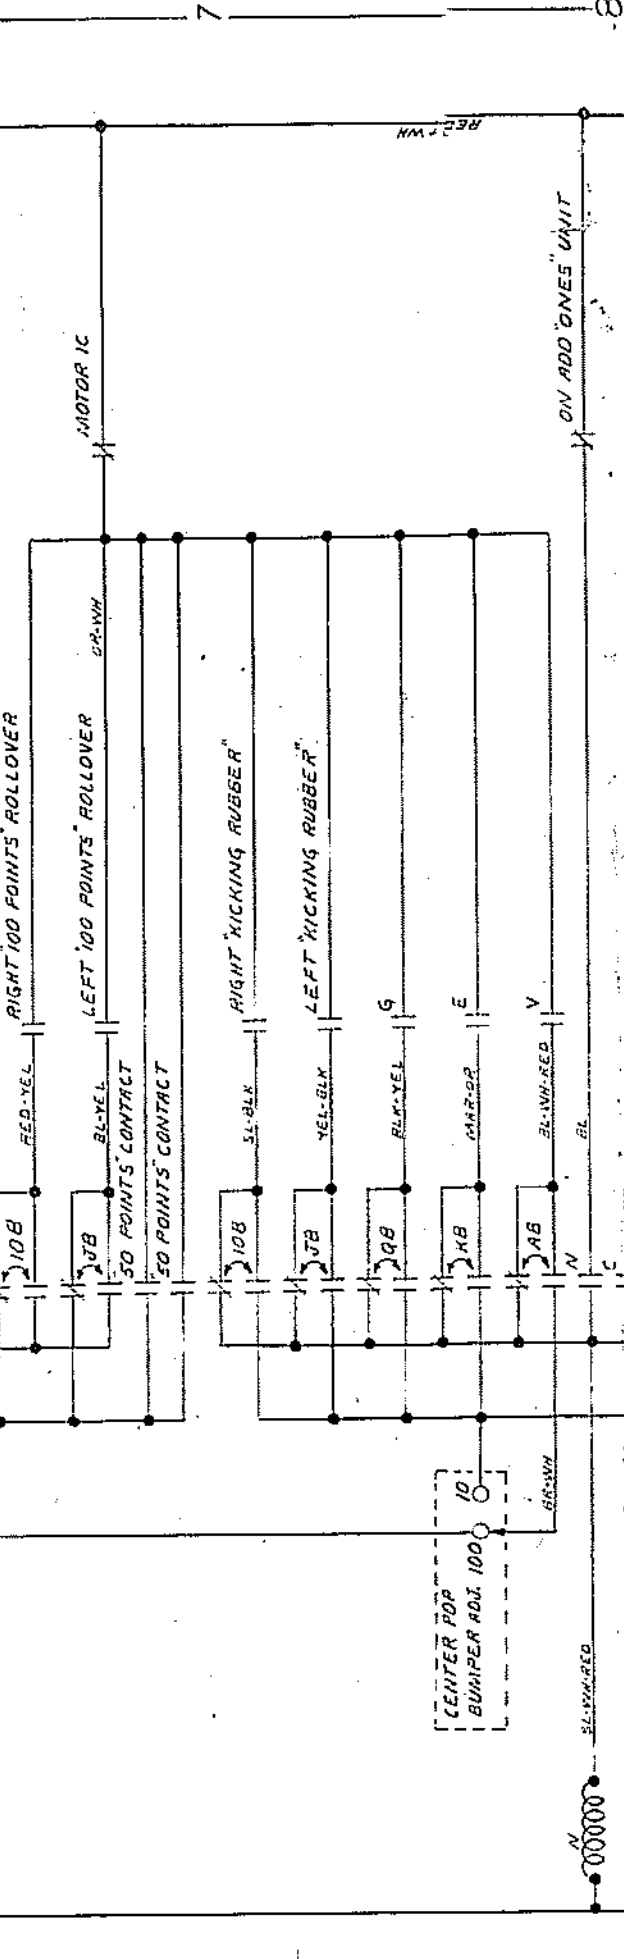 7
8
RED-WH
MOTOR 1C
ON ADD "ONES" UNIT
OR-WH
RIGHT "100 POINTS" ROLLOVER
LEFT "100 POINTS" ROLLOVER
RIGHT "KICKING RUBBER"
LEFT "KICKING RUBBER"
G
E
V
RED-YEL
BL-YEL
50 POINTS" CONTACT
"50 POINTS" CONTACT
SL-BLK
YEL-BLK
BLK-YEL
MAR-OR
BL-WH-RED
BL
10B
JB
10B
JB
QB
KB
AB
N
C
CENTER POP
BUMPER ADJ. 100
10
BR-WH
SL-WH-RED
N